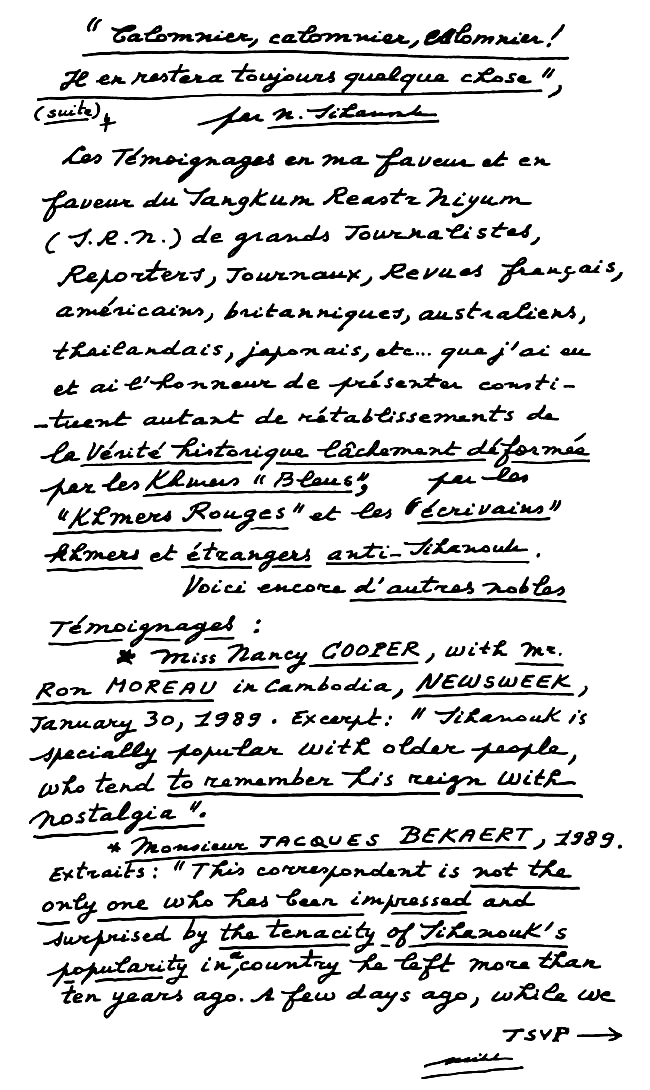 "Calomnier, calomnier, calomnier!
Il en restera toujours quelque chose",
(suite)
par N. Sihanouk
Les Témoignages en ma faveur et en
faveur du Sangkum Reastr Niyum
(S.R.N.) de grands Journalistes,
Reporters, Journaux, Revues français,
américains, britanniques, australiens,
thaïlandais, japonais, etc... que j'ai eu
et ai l'honneur de présenter consti-
-tuent autant de rétablissements de
la Vérité historique lâchement déformée
par les Khmers "Bleus", par les
"Khmers Rouges" et les "écrivains"
khmers et étrangers anti-Sihanouk.
Voici encore d'autres nobles
Témoignages :
* Miss Nancy COOPER, with Mr.
Ron MOREAU in Cambodia, NEWSWEEK,
January 30, 1989. Excerpt: "Sihanouk is
specially popular with older people,
who tend to remember his reign with
nostalgia".
* Monsieur JACQUES BEKAERT, 1989.
Extraits: "This correspondent is not the
only one who has been impressed and
surprised by the tenacity of Sihanouk's
popularity in a country he left more than
ten years ago. A few days ago, while we
TSVP →